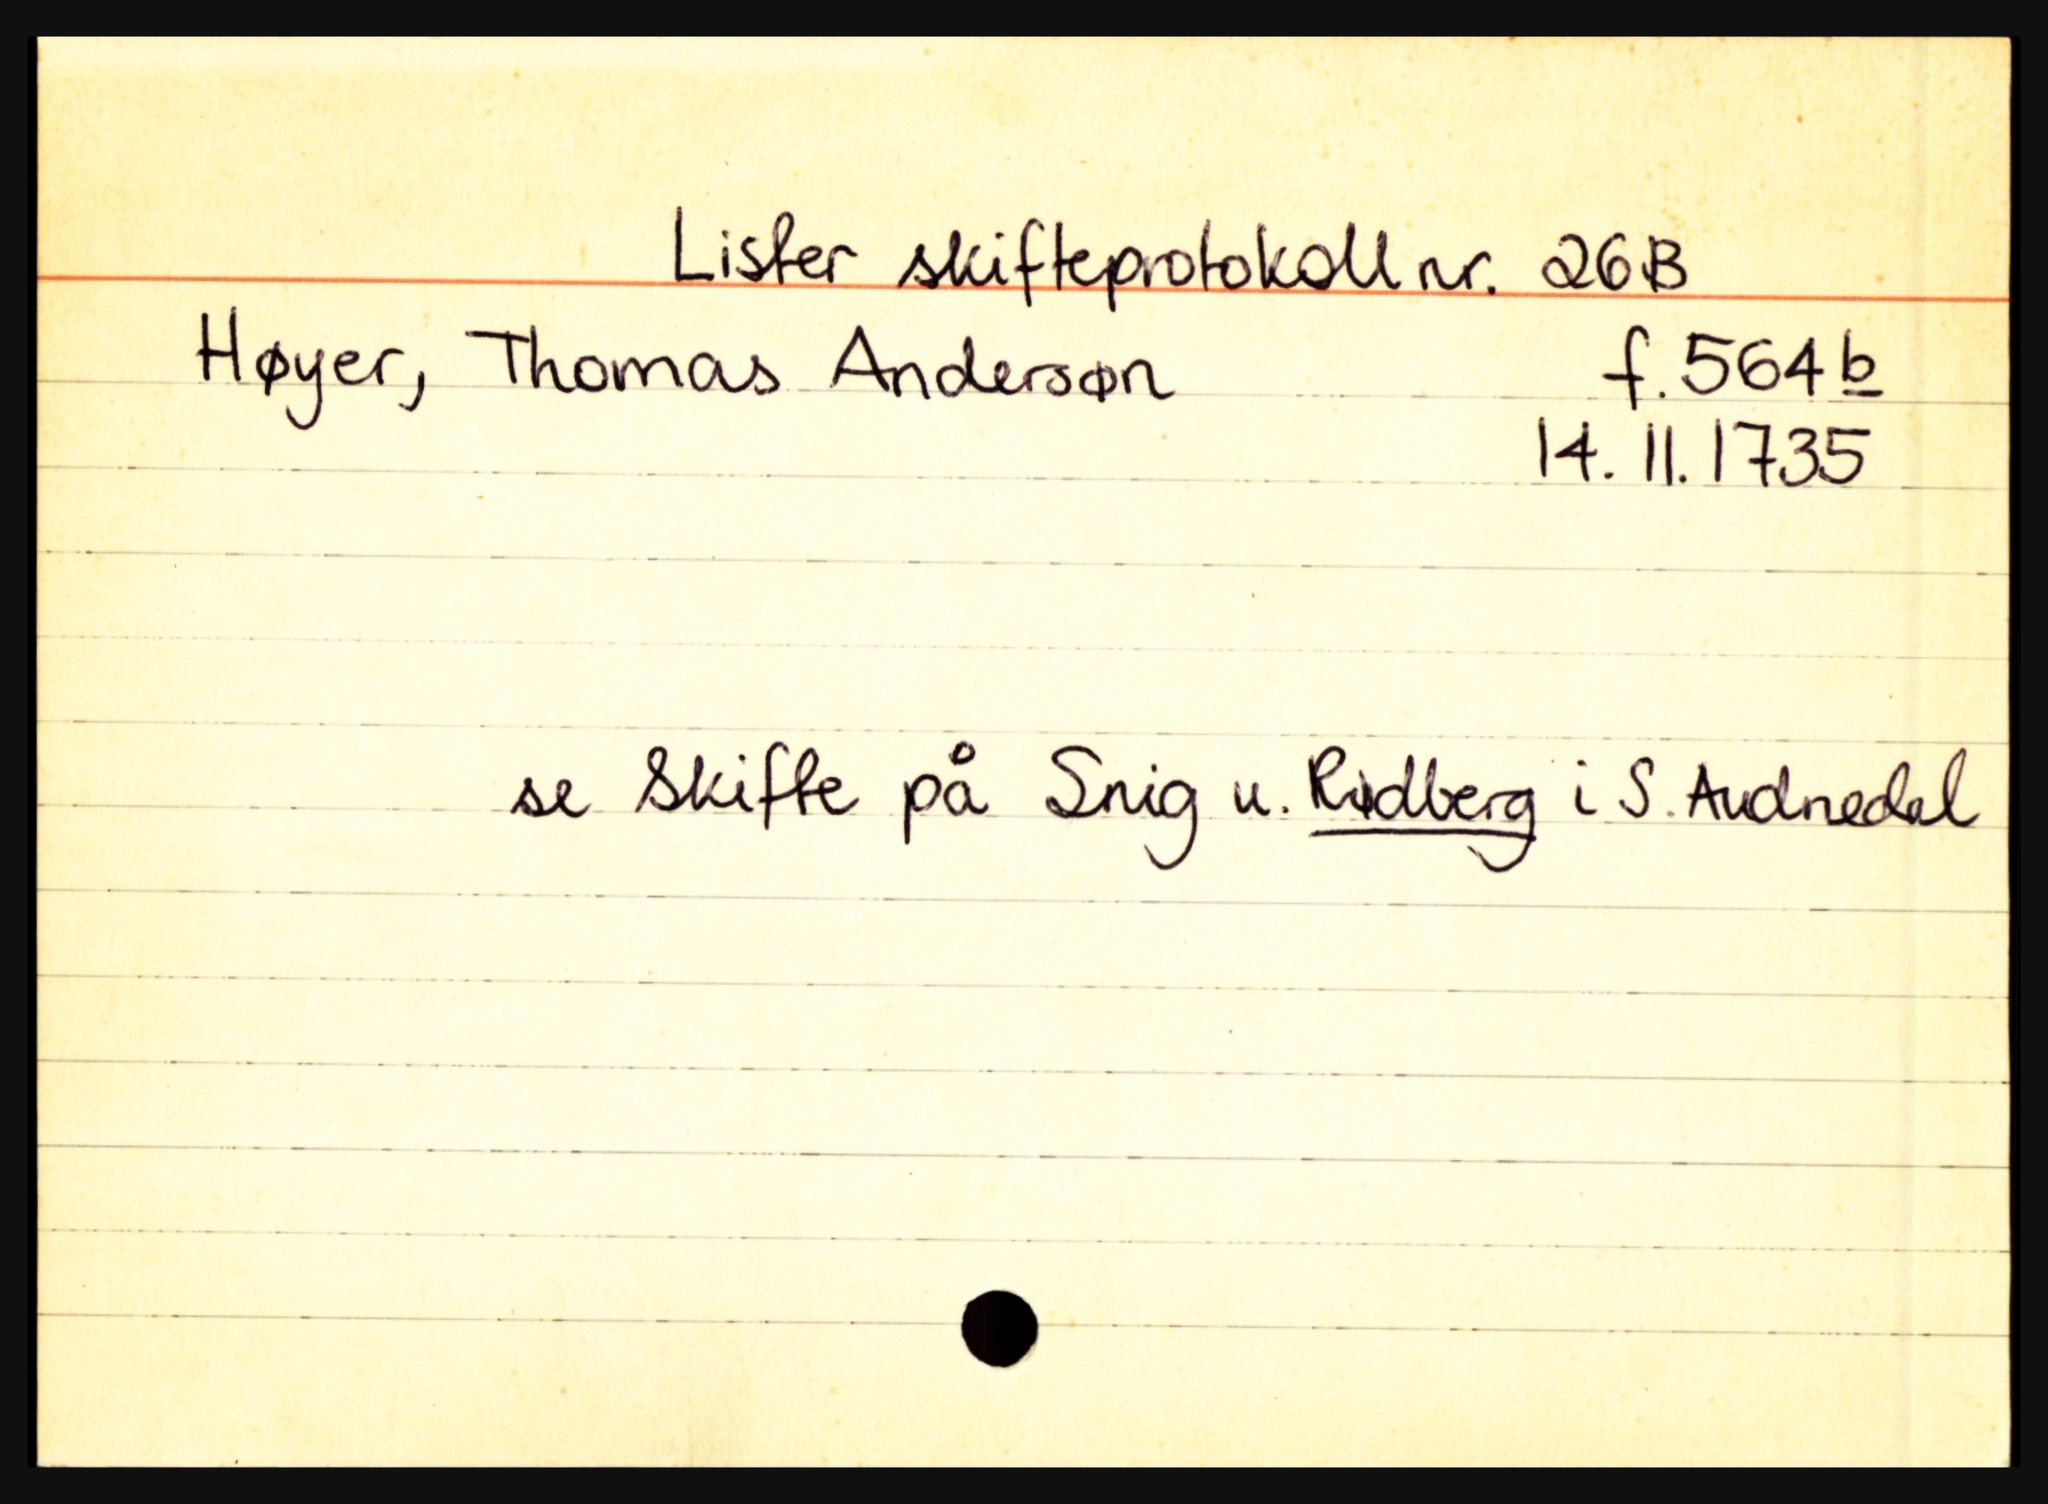 Lister skifteprotokoll nr. 26B
Høyer, Thomas Andersøn f. 564b
14. 11. 1735
se Skifte på Snig u. Rødberg i S. Audnedal